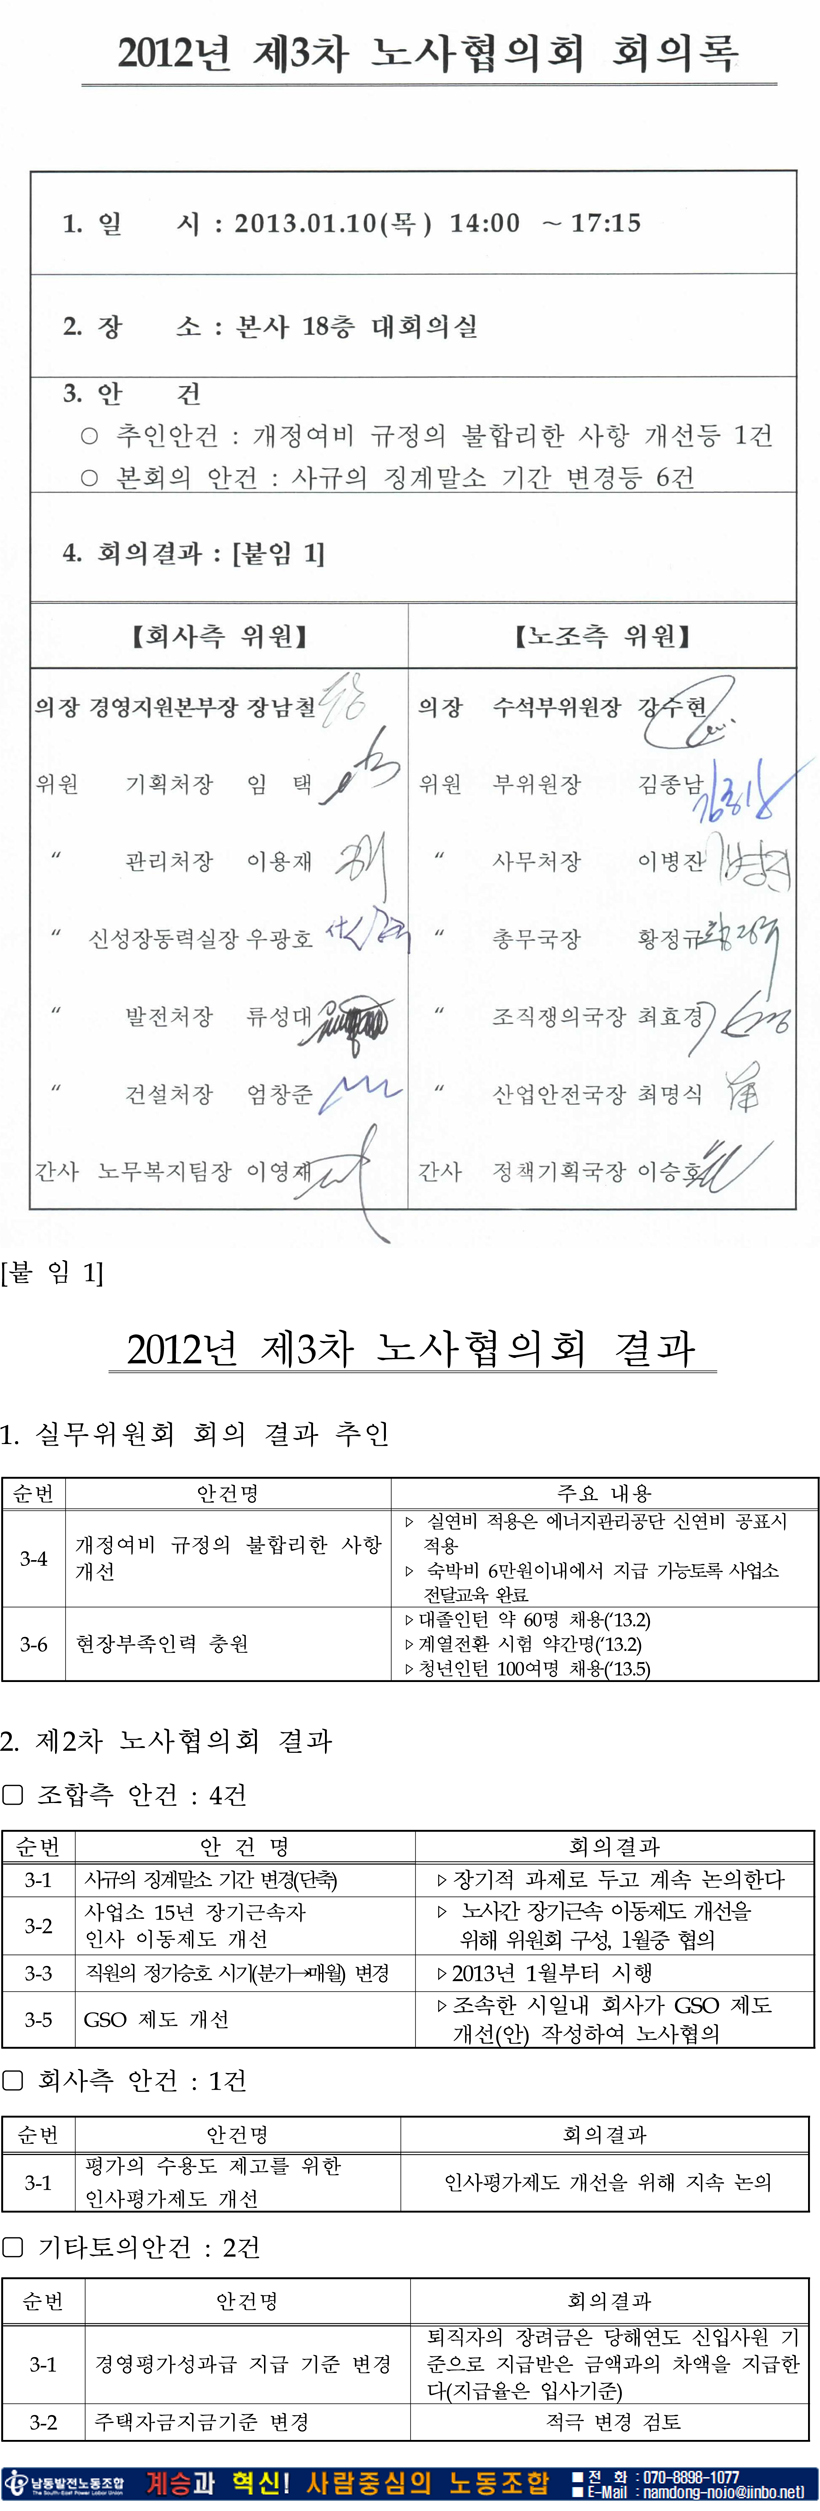 2012년 제3차 노사협의회 회의록
1. 일 시 : 2013.01.10(목) 14:00 ~ 17:15
2. 장 소 : 본사 18층 대회의실
3. 안 건
○ 추인안건 : 개정여비 규정의 불합리한 사항 개선등 1건
○ 본회의 안건 : 사규의 징계말소 기간 변경등 6건
4. 회의결과 : [붙임 1]
【회사측 위원】 【노조측 위원】
의장 경영지원본부장 장남철 의장 수석부위원장 강수현
위원 기획처장 임 택 위원 부위원장 김종남
〃 관리처장 이용재 〃 사무처장 이병잔
〃 신성장동력실장 우광호 〃 총무국장 황정규
〃 발전처장 류성대 〃 조직쟁의국장 최효경
〃 건설처장 엄창준 〃 산업안전국장 최명식
간사 노무복지팀장 이영재 간사 정책기획국장 이승호
[붙 임 1]
2012년 제3차 노사협의회 결과
1. 실무위원회 회의 결과 추인
순번 안건명 주요 내용
3-4 개정여비 규정의 불합리한 사항 개선
▷ 실연비 적용은 에너지관리공단 신연비 공표시
적용
▷ 숙박비 6만원이내에서 지급 가능토록 사업소
전달교육 완료
3-6 현장부족인력 충원
▷대졸인턴 약 60명 채용(‘13.2)
▷계열전환 시험 약간명(‘13.2)
▷청년인턴 100여명 채용(‘13.5)
2. 제2차 노사협의회 결과
□ 조합측 안건 : 4건
순번 안 건 명 회의결과
3-1 사규의 징계말소 기간 변경(단축) ▷장기적 과제로 두고 계속 논의한다
3-2 사업소 15년 장기근속자
인사 이동제도 개선
▷ 노사간 장기근속 이동제도 개선을
위해 위원회 구성, 1월중 협의
3-3 직원의 정기승호 시기(분기→매월) 변경 ▷2013년 1월부터 시행
3-5 GSO 제도 개선
▷조속한 시일내 회사가 GSO 제도
개선(안) 작성하여 노사협의
□ 회사측 안건 : 1건
순번 안건명 회의결과
3-1 평가의 수용도 제고를 위한
인사평가제도 개선
인사평가제도 개선을 위해 지속 논의
□ 기타토의안건 : 2건
순번 안건명 회의결과
3-1 경영평가성과급 지급 기준 변경
퇴직자의 장려금은 당해연도 신입사원 기
준으로 지급받은 금액과의 차액을 지급한
다(지급율은 입사기준)
3-2 주택자금지금기준 변경 적극 변경 검토
남동발전노동조합
The South-East Power Labor Union
계승과 혁신! 사람중심의 노동조합
■ 전 화 : 070-8898-1077
■ E-Mail : namdong-nojo@jinbo.net)